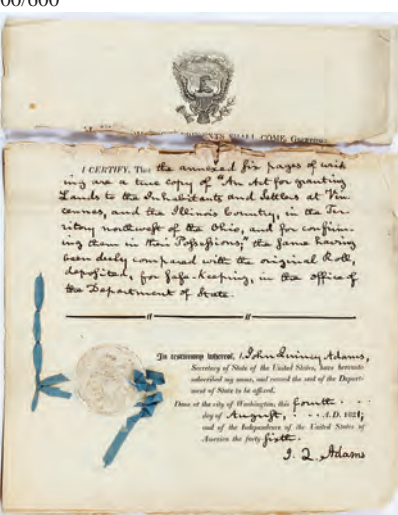 00/600
SHALL COME, GREETING
I CERTIFY, That the annexed six pages of writ
ing are a true copy of "An Act for granting
Lands to the Inhabitants and Settlers at Vin
cennes, and the Illinois Country, in the Ter
ritory northwest of the Ohio, and for confirm
ing them in their Possessions;" the same having
been duly compared with the original Roll,
deposited, for safe-keeping, in the office of
the Department of State.
In testimony whereof, I, John Quincy Adams,
Secretary of State of the United States, have hereunto
subscribed my name, and caused the seal of the Depart-
ment of State to be affixed.
Done at the city of Washington, this fourth
day of August, A.D. 1821;
and of the Independence of the United States of
America the forty-sixth.
J. Q. Adams